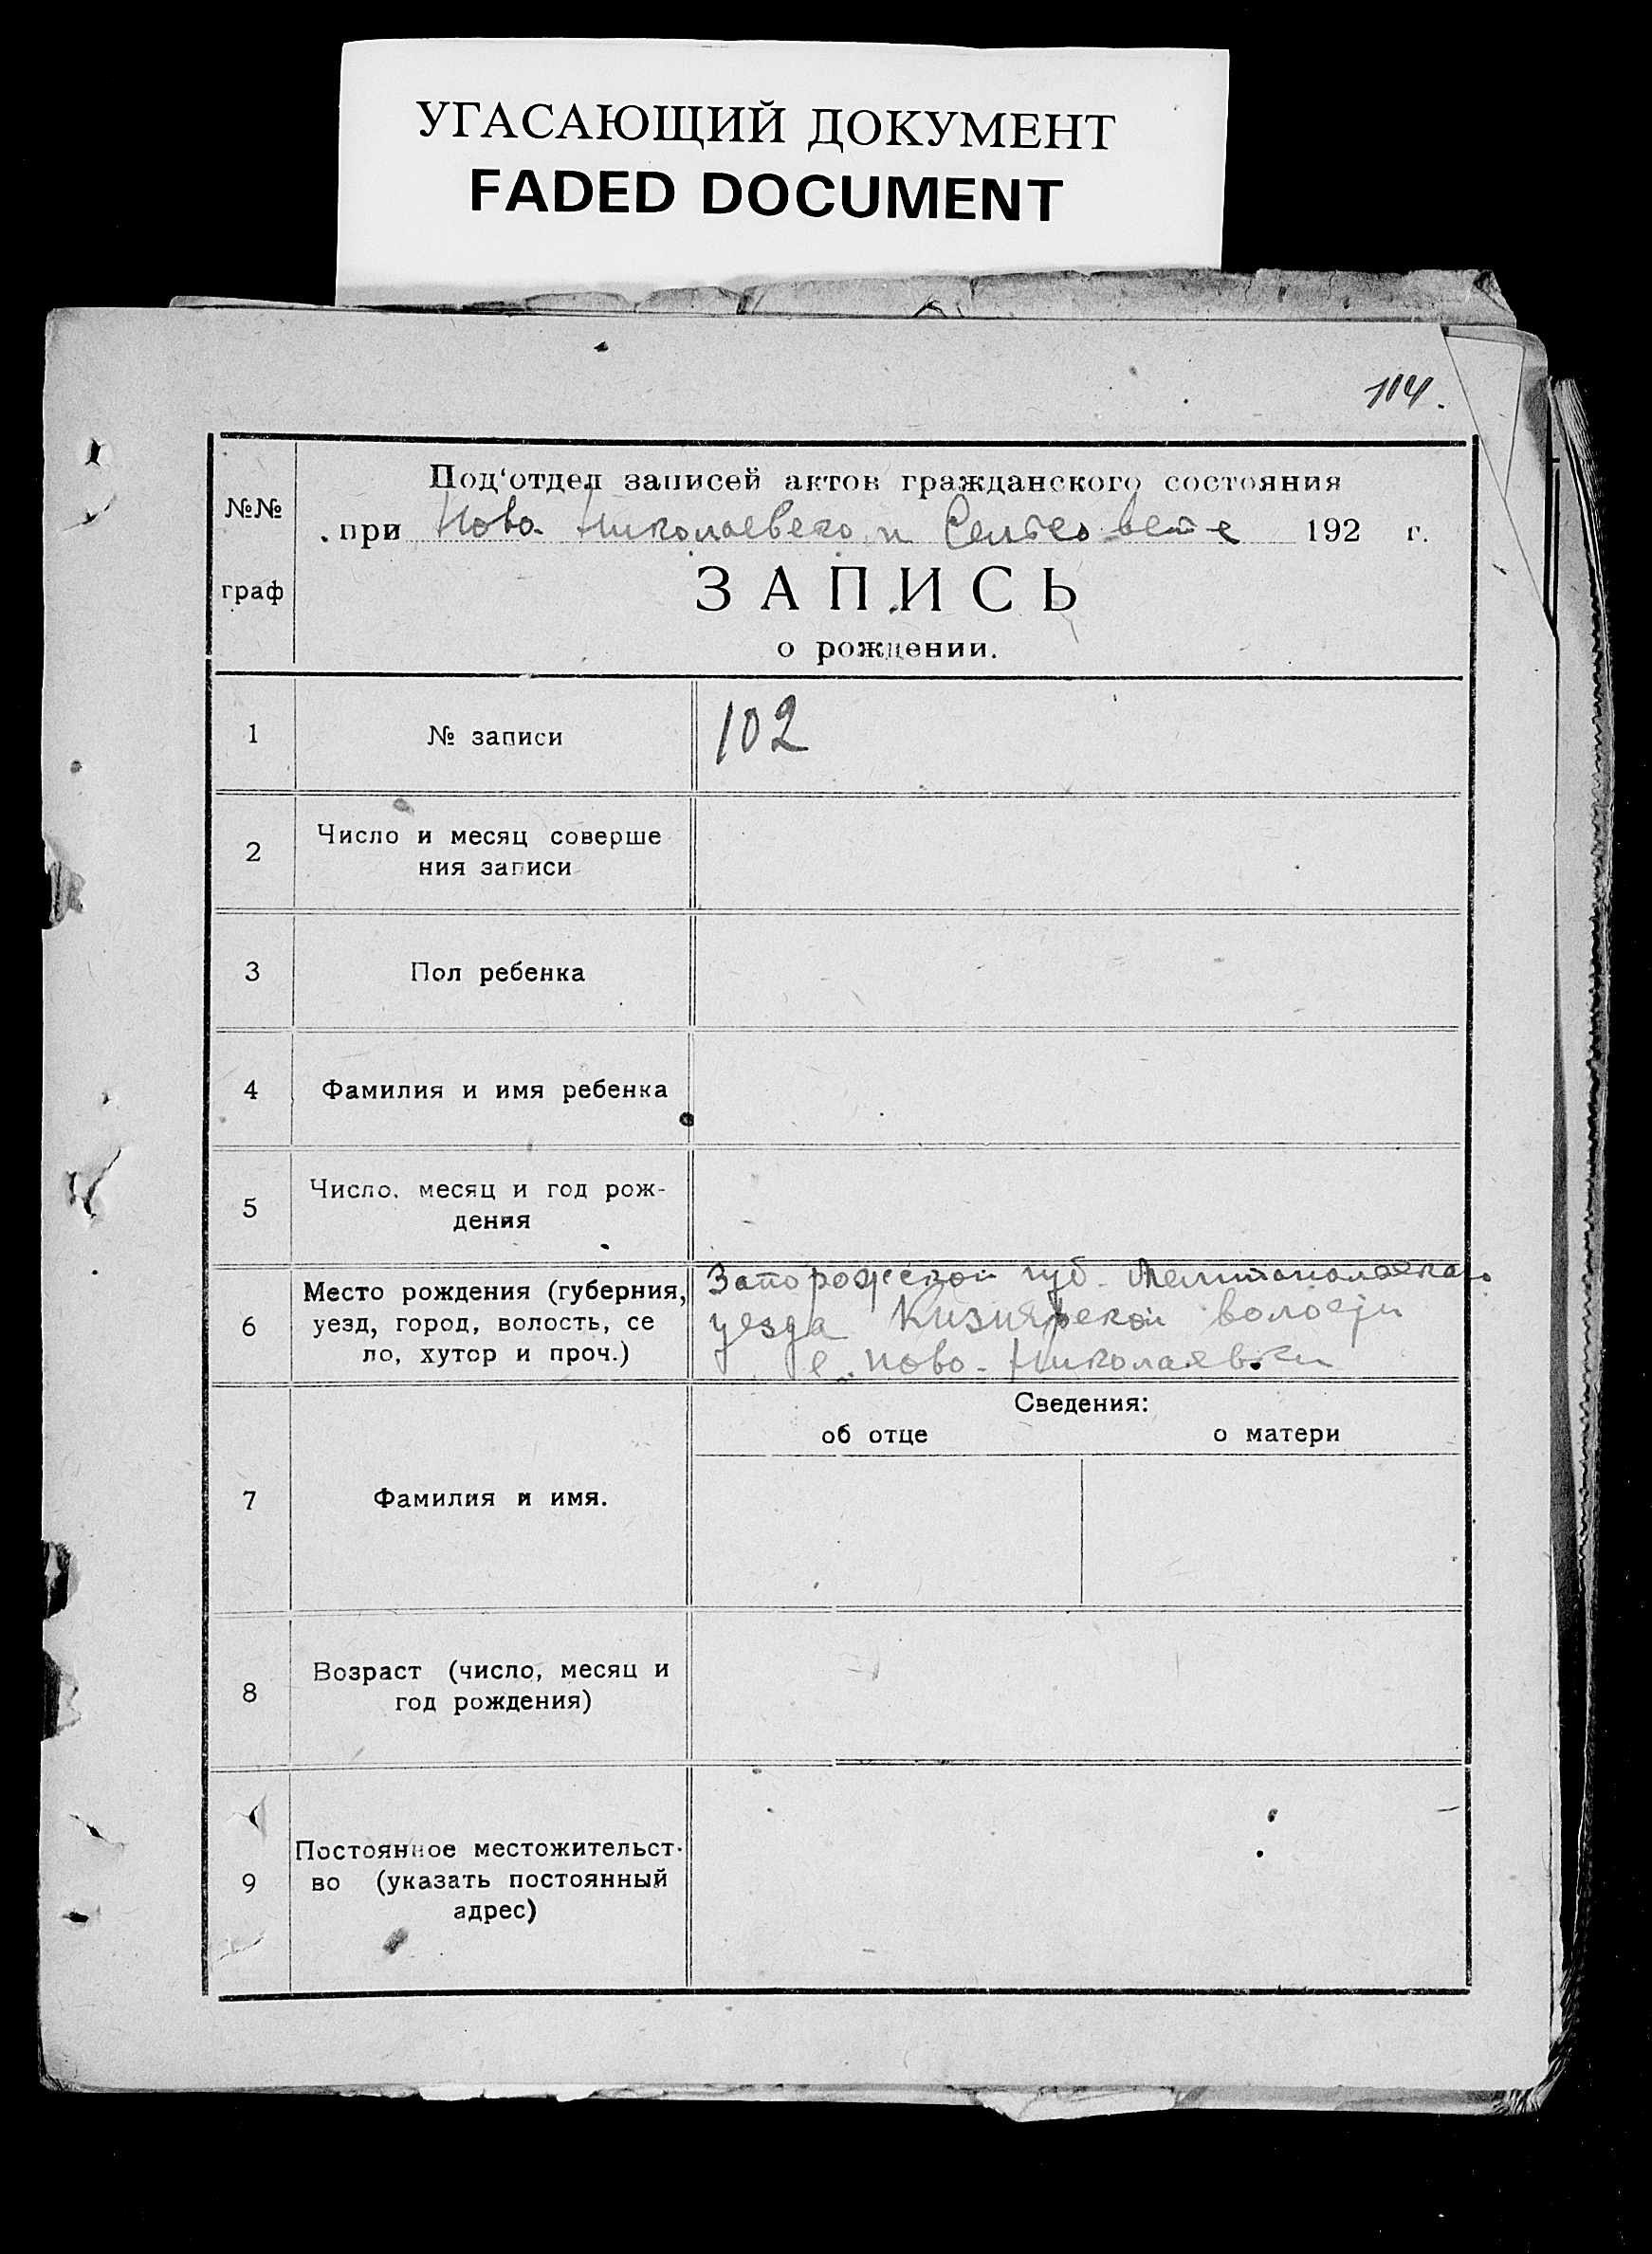 УГАСАЮЩИЙ ДОКУМЕНТ
FADED DOCUMENT
114.
№№
граф
Под'отдел записей актов гражданского состояния
при Ново-Николаевском Сельсовете 192 г.
ЗАПИСЬ
о рождении.
1 № записи 102
2 Число и месяц соверше
ния записи
3 Пол ребенка
4 Фамилия и имя ребенка
5 Число, месяц и год рож-
дения
6 Место рождения (губерния,
уезд, город, волость, се
ло, хутор и проч.)
Запорожской губ. Мелитопольского
уезда Кизиярской волости
с. Ново-Николаевки
Сведения:
об отце о матери
7 Фамилия и имя.
8 Возраст (число, месяц и
год рождения)
9 Постоянное местожительст-
во (указать постоянный
адрес)